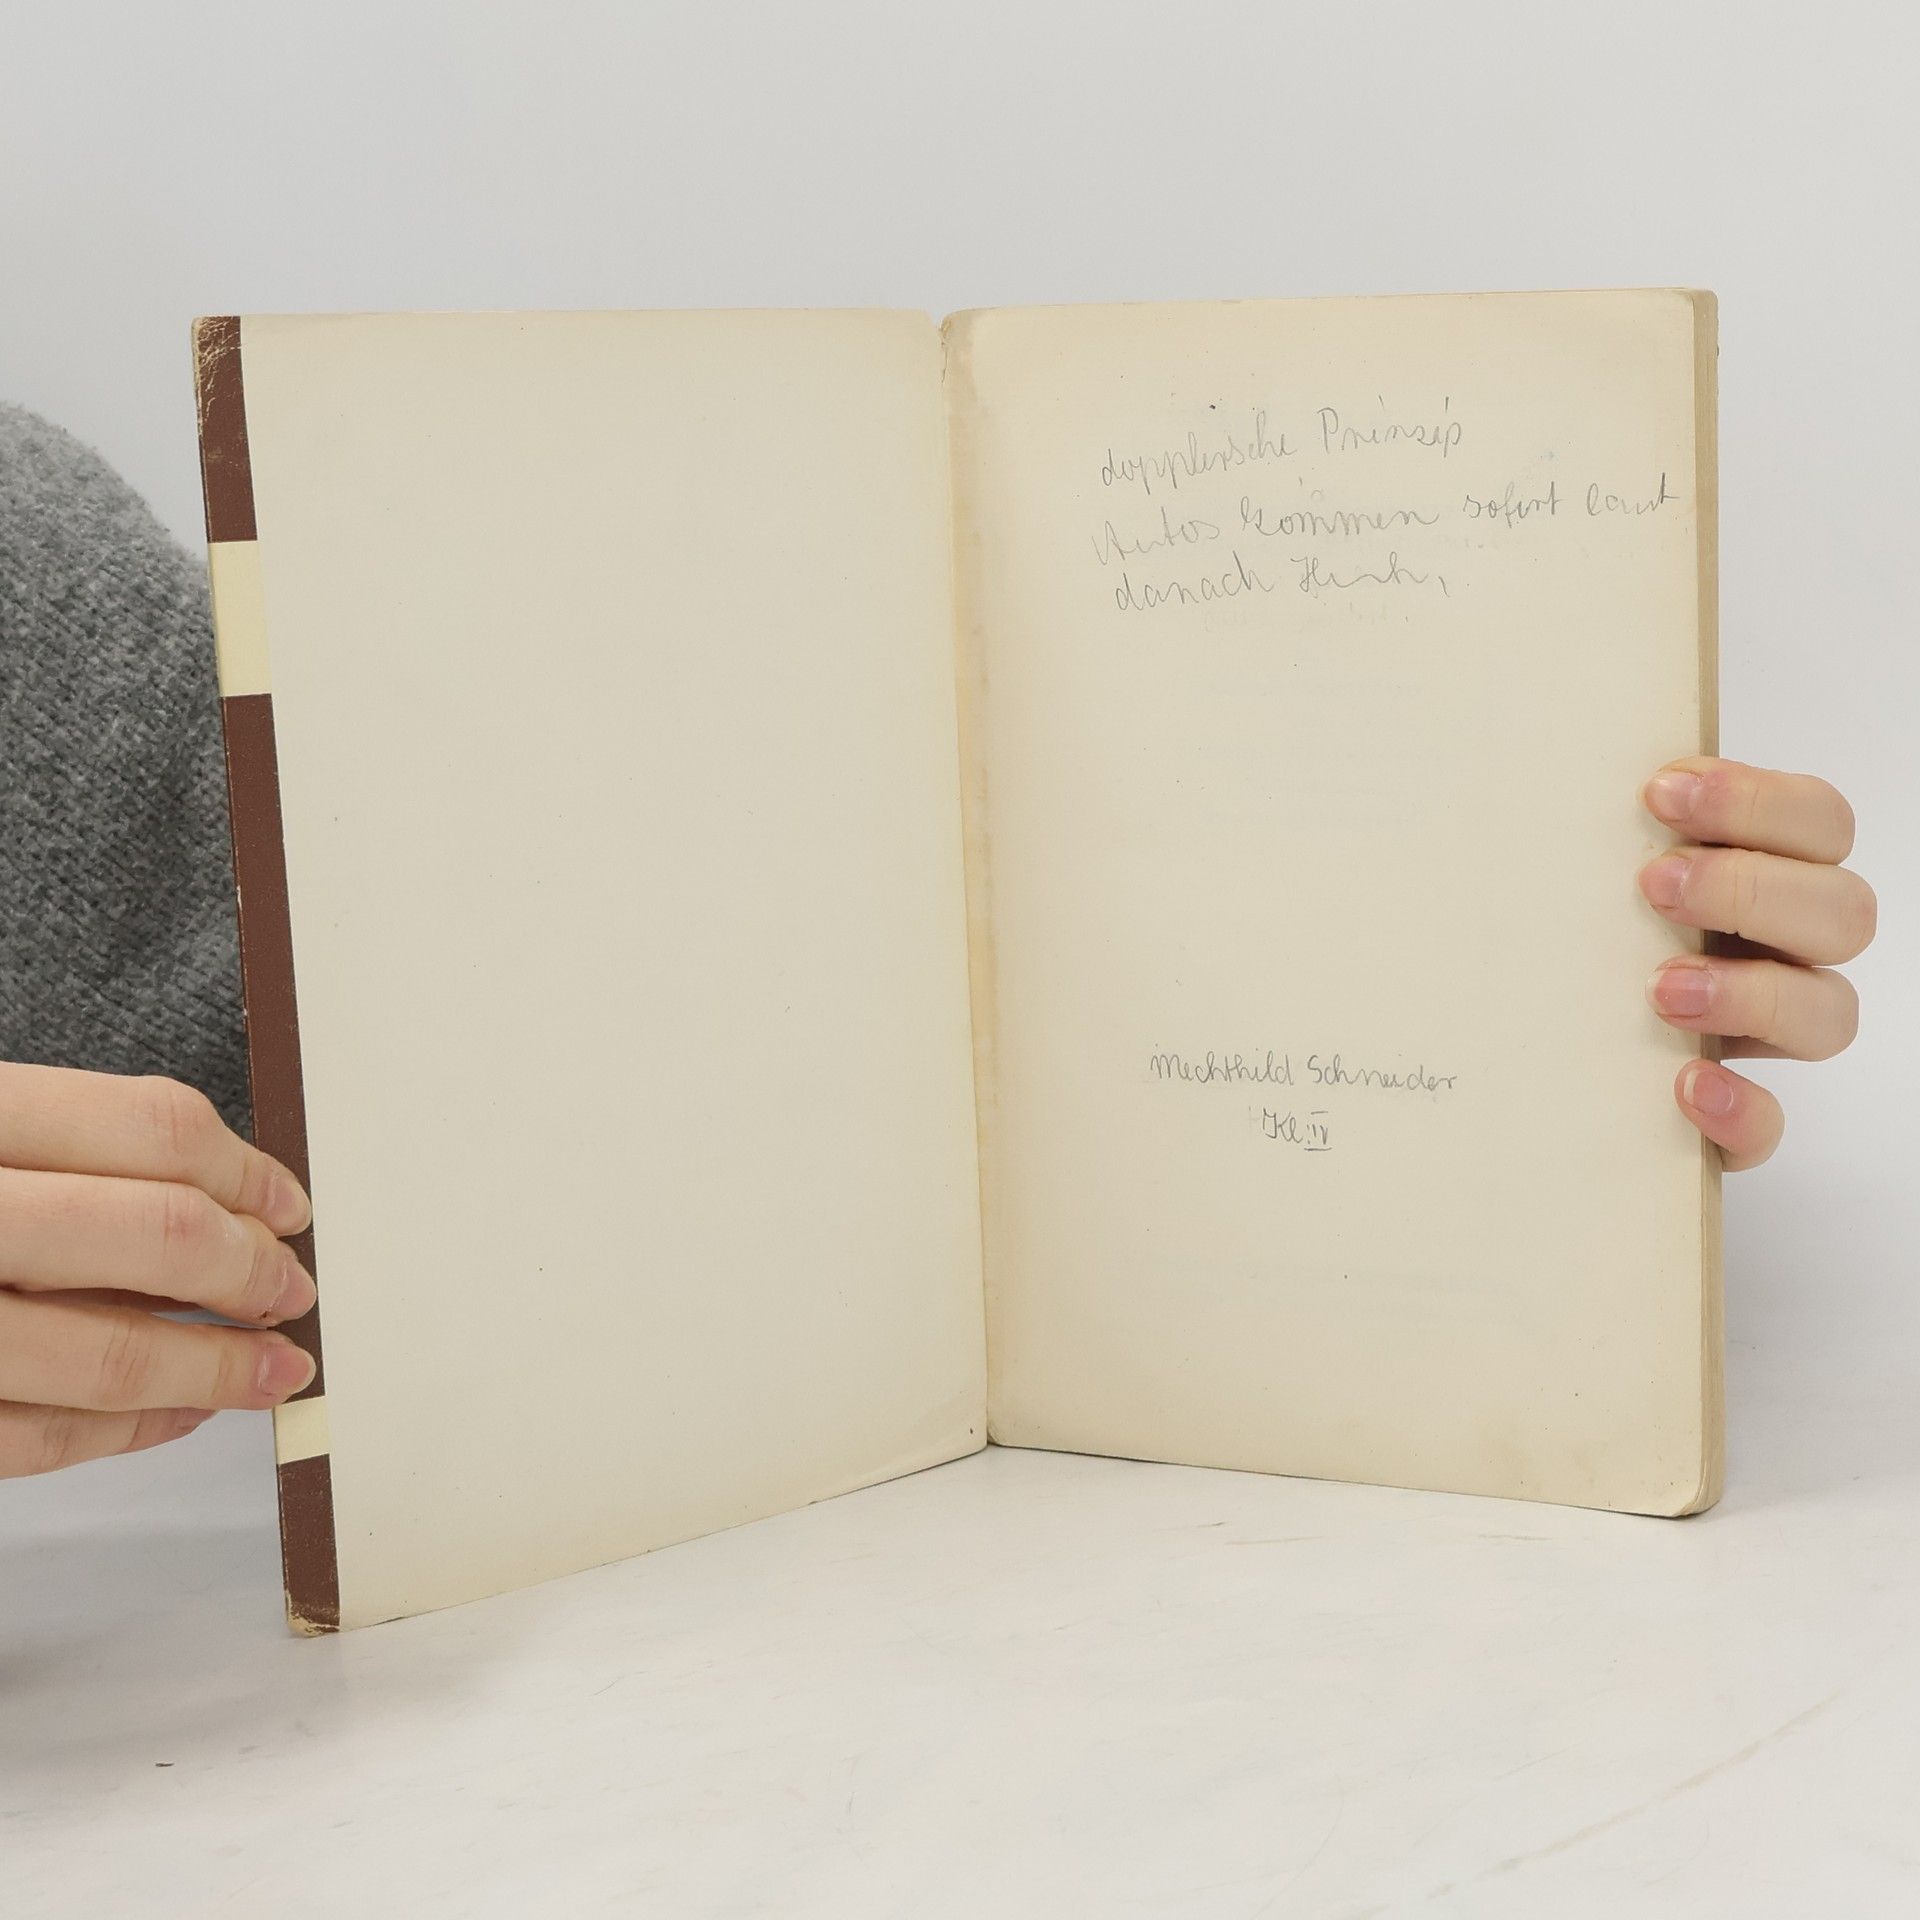 dopplersche Prinzip
Autos kommen sofort laut
danach
Mechthild Schneider
Kl. IV